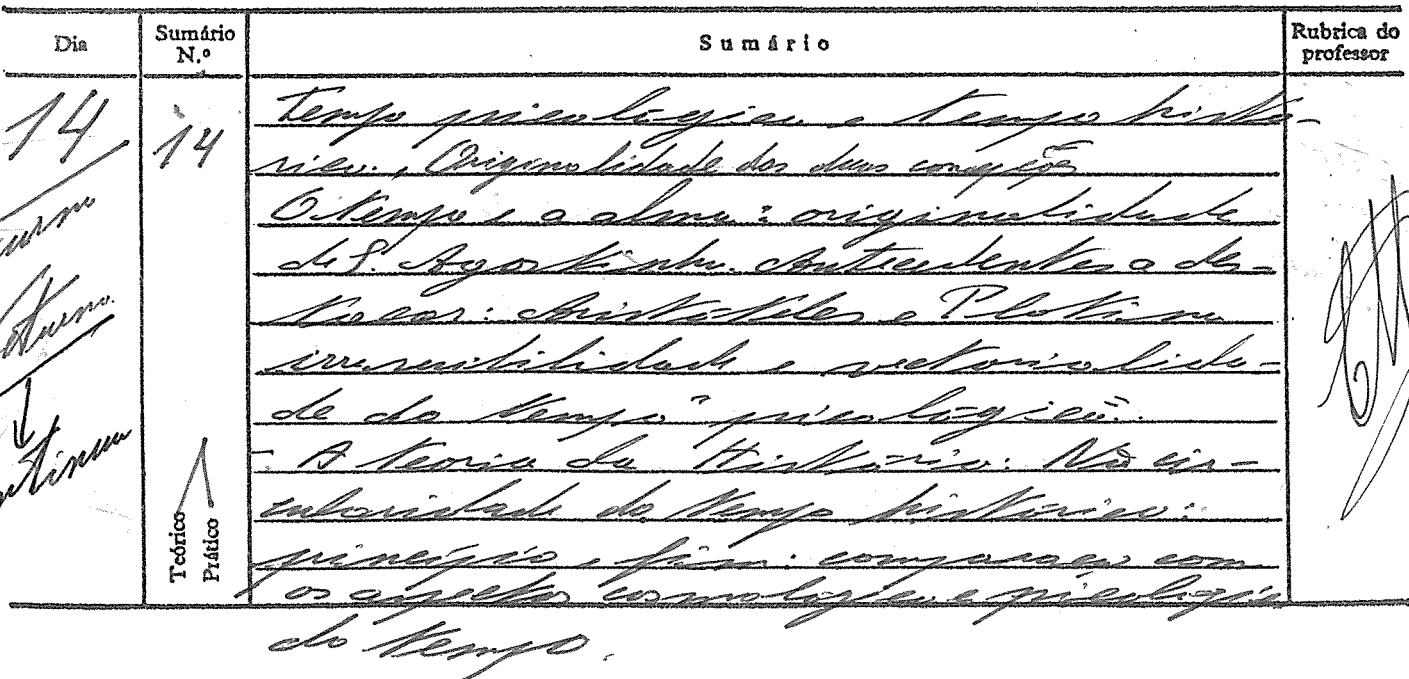 Dia
Sumário N.º
Sumário
Rubrica do professor
14
14
Tempo psicológico e tempo histó-
rico. Originalidade das duas concepções
O tempo e a alma: originalidade
de S. Agostinho. Antecedentes a des-
tacar: Aristóteles e Plotino
irreversibilidade e vectorialida-
de do tempo "psicológico".
- A teoria da História. Não cir-
cularidade do tempo histórico:
princípio e fim: comparação com
os aspectos cosmológico e psicológico
do tempo.
Nocturno
Teórico
Prático